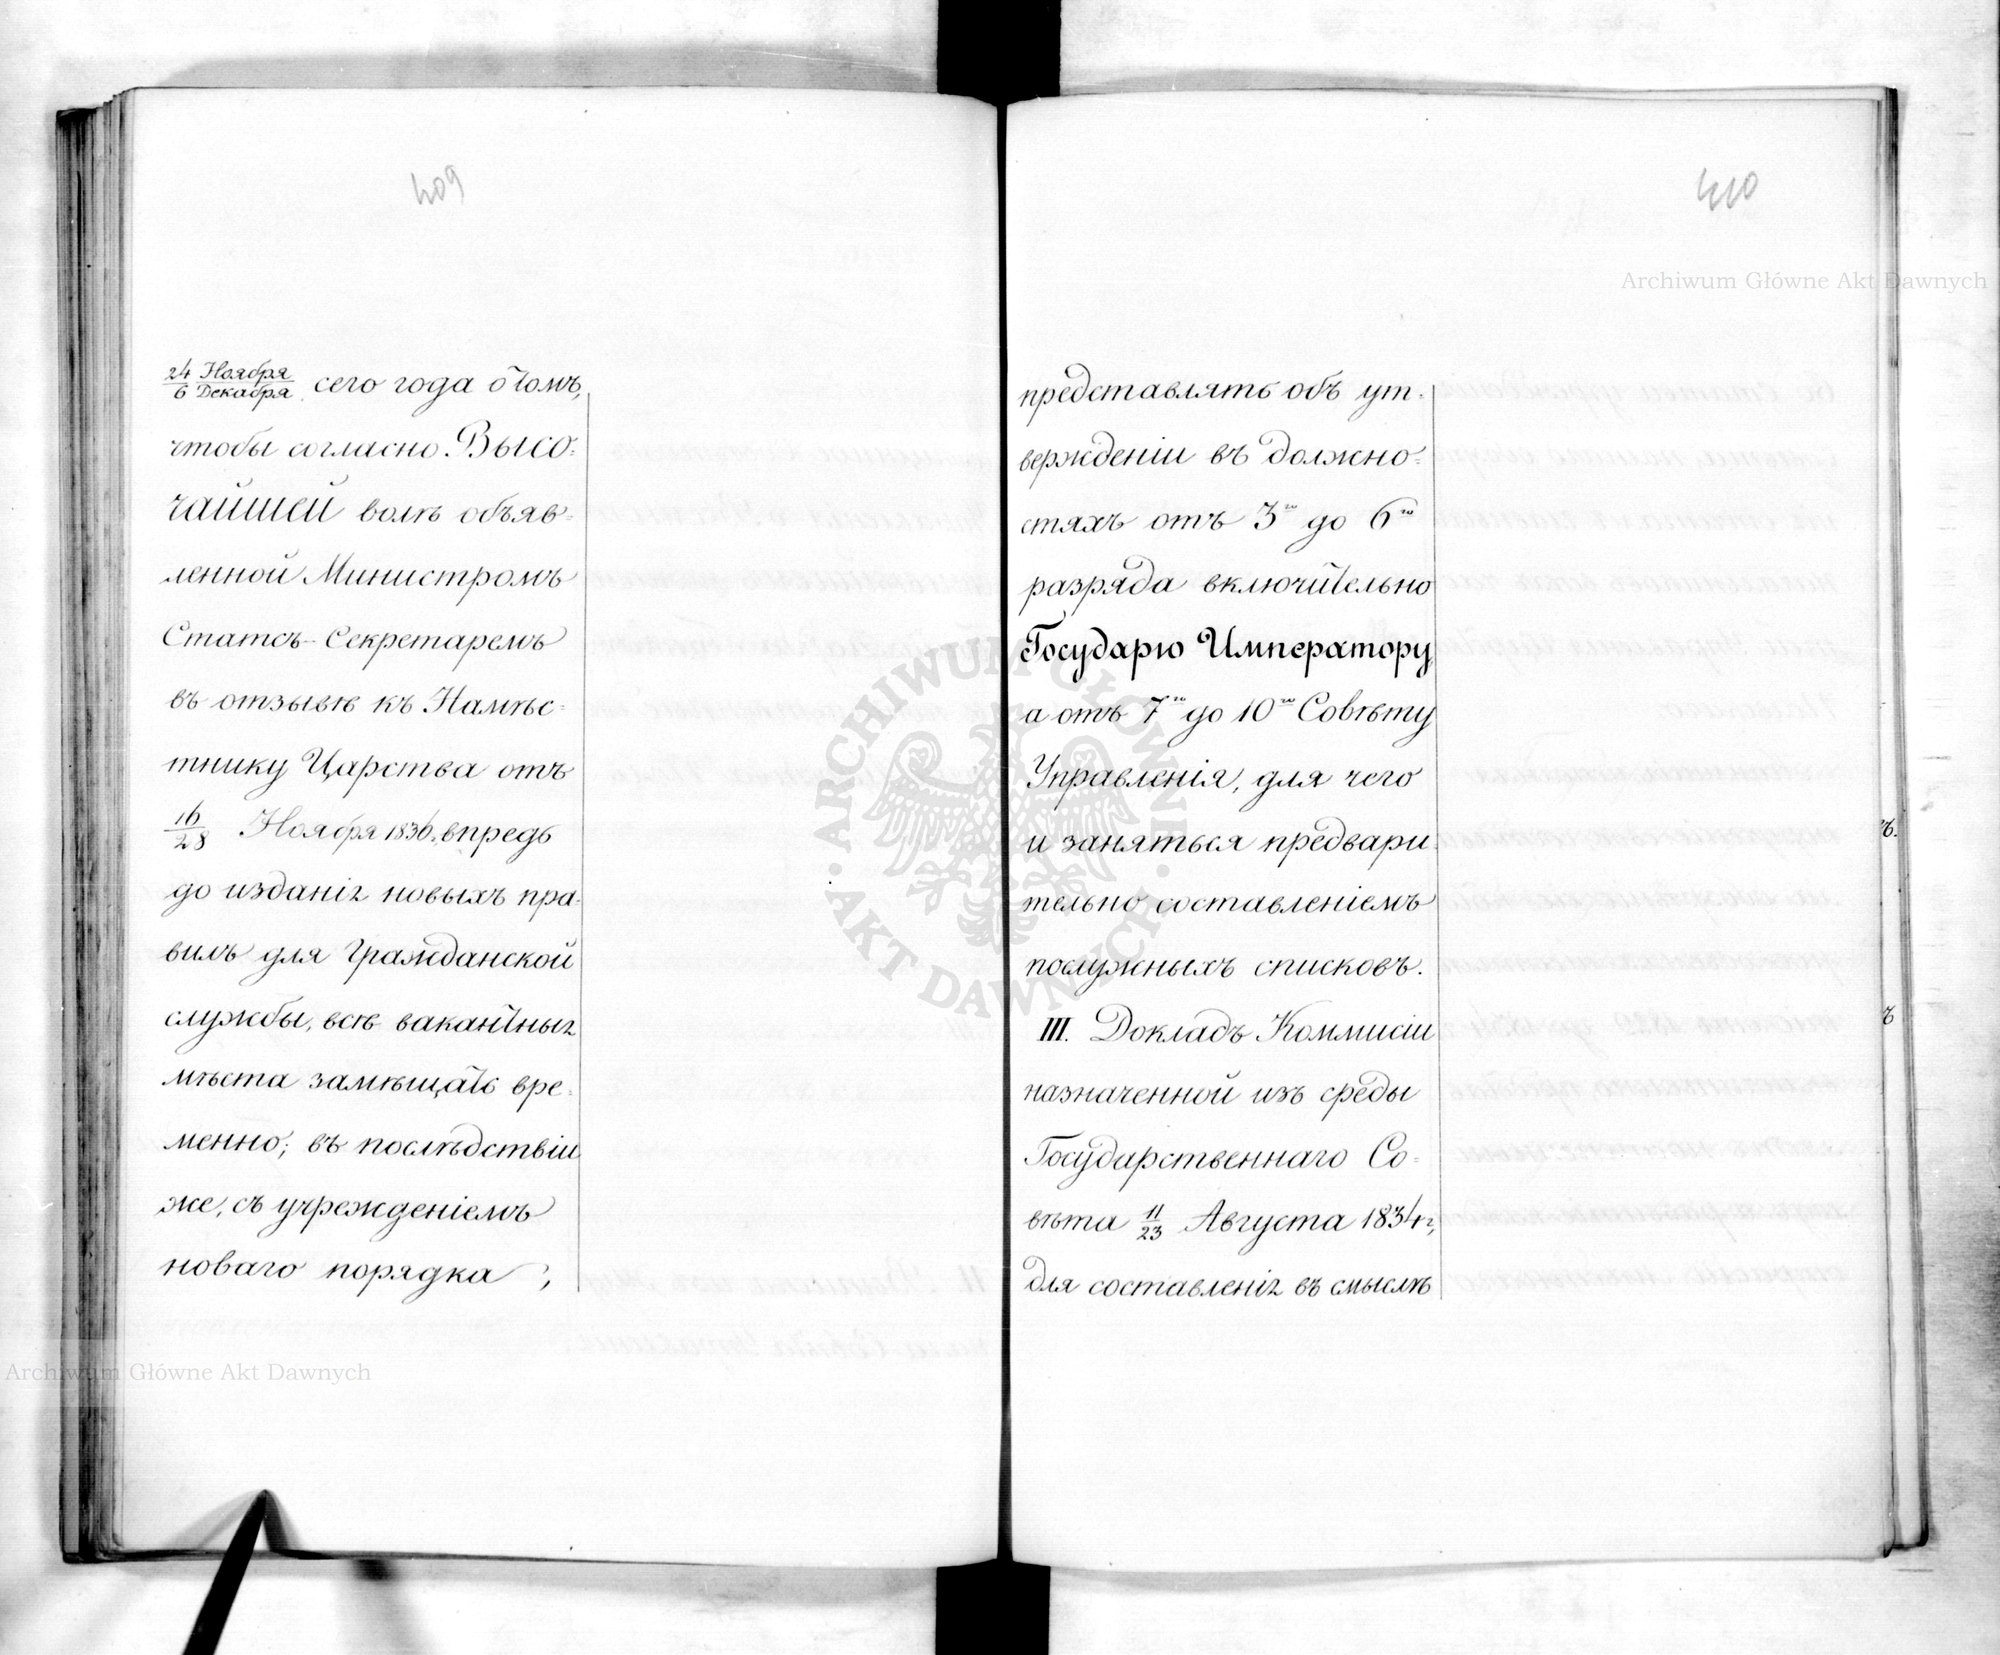 409
24 Ноября
6 Декабря сего года о томъ,
чтобы согласно Высо-
чайшей волѣ объяв-
ленной Министромъ
Статсъ-Секретаремъ
въ отзывѣ къ Намѣс-
тнику Царства отъ
16/28 Ноября 1836, впредь
до изданія новыхъ пра-
вилъ для Гражданской
службы, всѣ вакантныя
мѣста замѣщать вре-
менно; въ послѣдствіи
же, съ учрежденіемъ
новаго порядка,
410
представлять объ ут-
вержденіи въ должно-
стяхъ отъ 3го до 6го
разряда включительно
Государю Императору,
а отъ 7го до 10го Совѣту
Управленія, для чего
и заняться предвари-
тельно составленіемъ
послужныхъ списковъ.
III. Докладъ Коммисіи
назначенной изъ среды
Государственнаго Со-
вѣта 11/23 Августа 1834 г.,
для составленія въ смыслѣ
Archiwum Główne Akt Dawnych
Archiwum Główne Akt Dawnych
ARCHIWUM GŁÓWNE AKT DAWNYCH